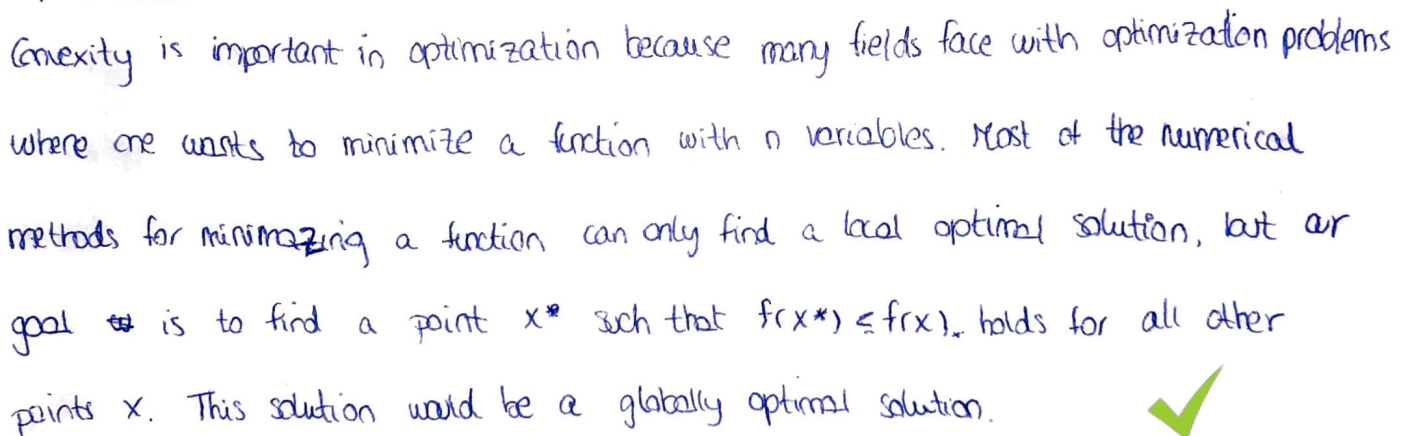 Convexity is important in optimization because many fields face with optimization problems
where one wants to minimize a function with n variables. Most of the numerical
methods for minimazing a function can only find a local optimal solution, but our
goal is to find a point x* such that f(x*) ≤ f(x). holds for all other
points x. This solution would be a globally optimal solution.